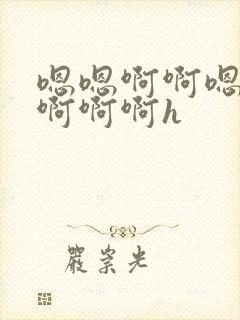 嗯嗯啊啊嗯
啊啊啊h
严崇光